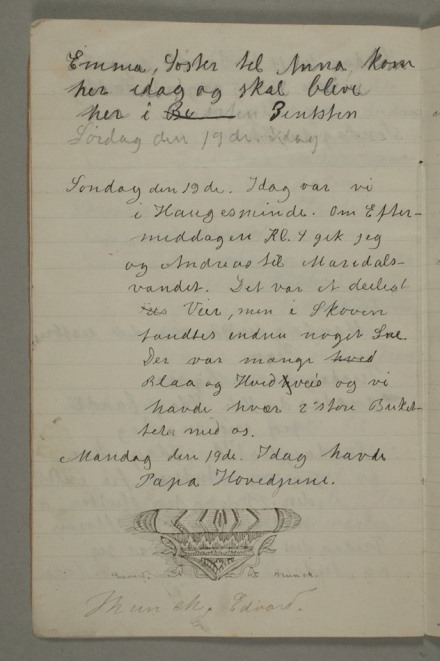 Emma, Søster til Anna, kom
her idag og skal blive
her i Be Bentsten
Lørdag den 19de. Idag
Søndag den 19de. Idag var vi
i Haugesminde. Om Efter-
middagen Kl. 4 gik jeg
og Andreas til Maridals-
vandet. Det var et deiligt
Veir, men i Skoven
fandtes endnu noget Sne.
Der var mange hved
Blaa og Hvidtveis og vi
havde hver 2 store Buket-
ter med os.
Mandag den 19de. Idag havde
Papa Hovedpine.
Munch. Edvard.